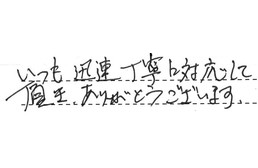 いつも 迅速 丁寧に対応して
頂き ありがとうございます。